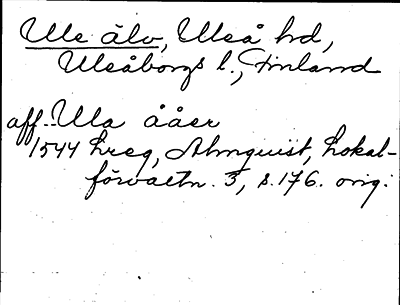 Ule älv, Uleå hd,
Uleåborgs l., Finland
aff. Ula ååer
1544 hreg, Almquist, Lokal-
förvaltn. 3, s. 176. orig.